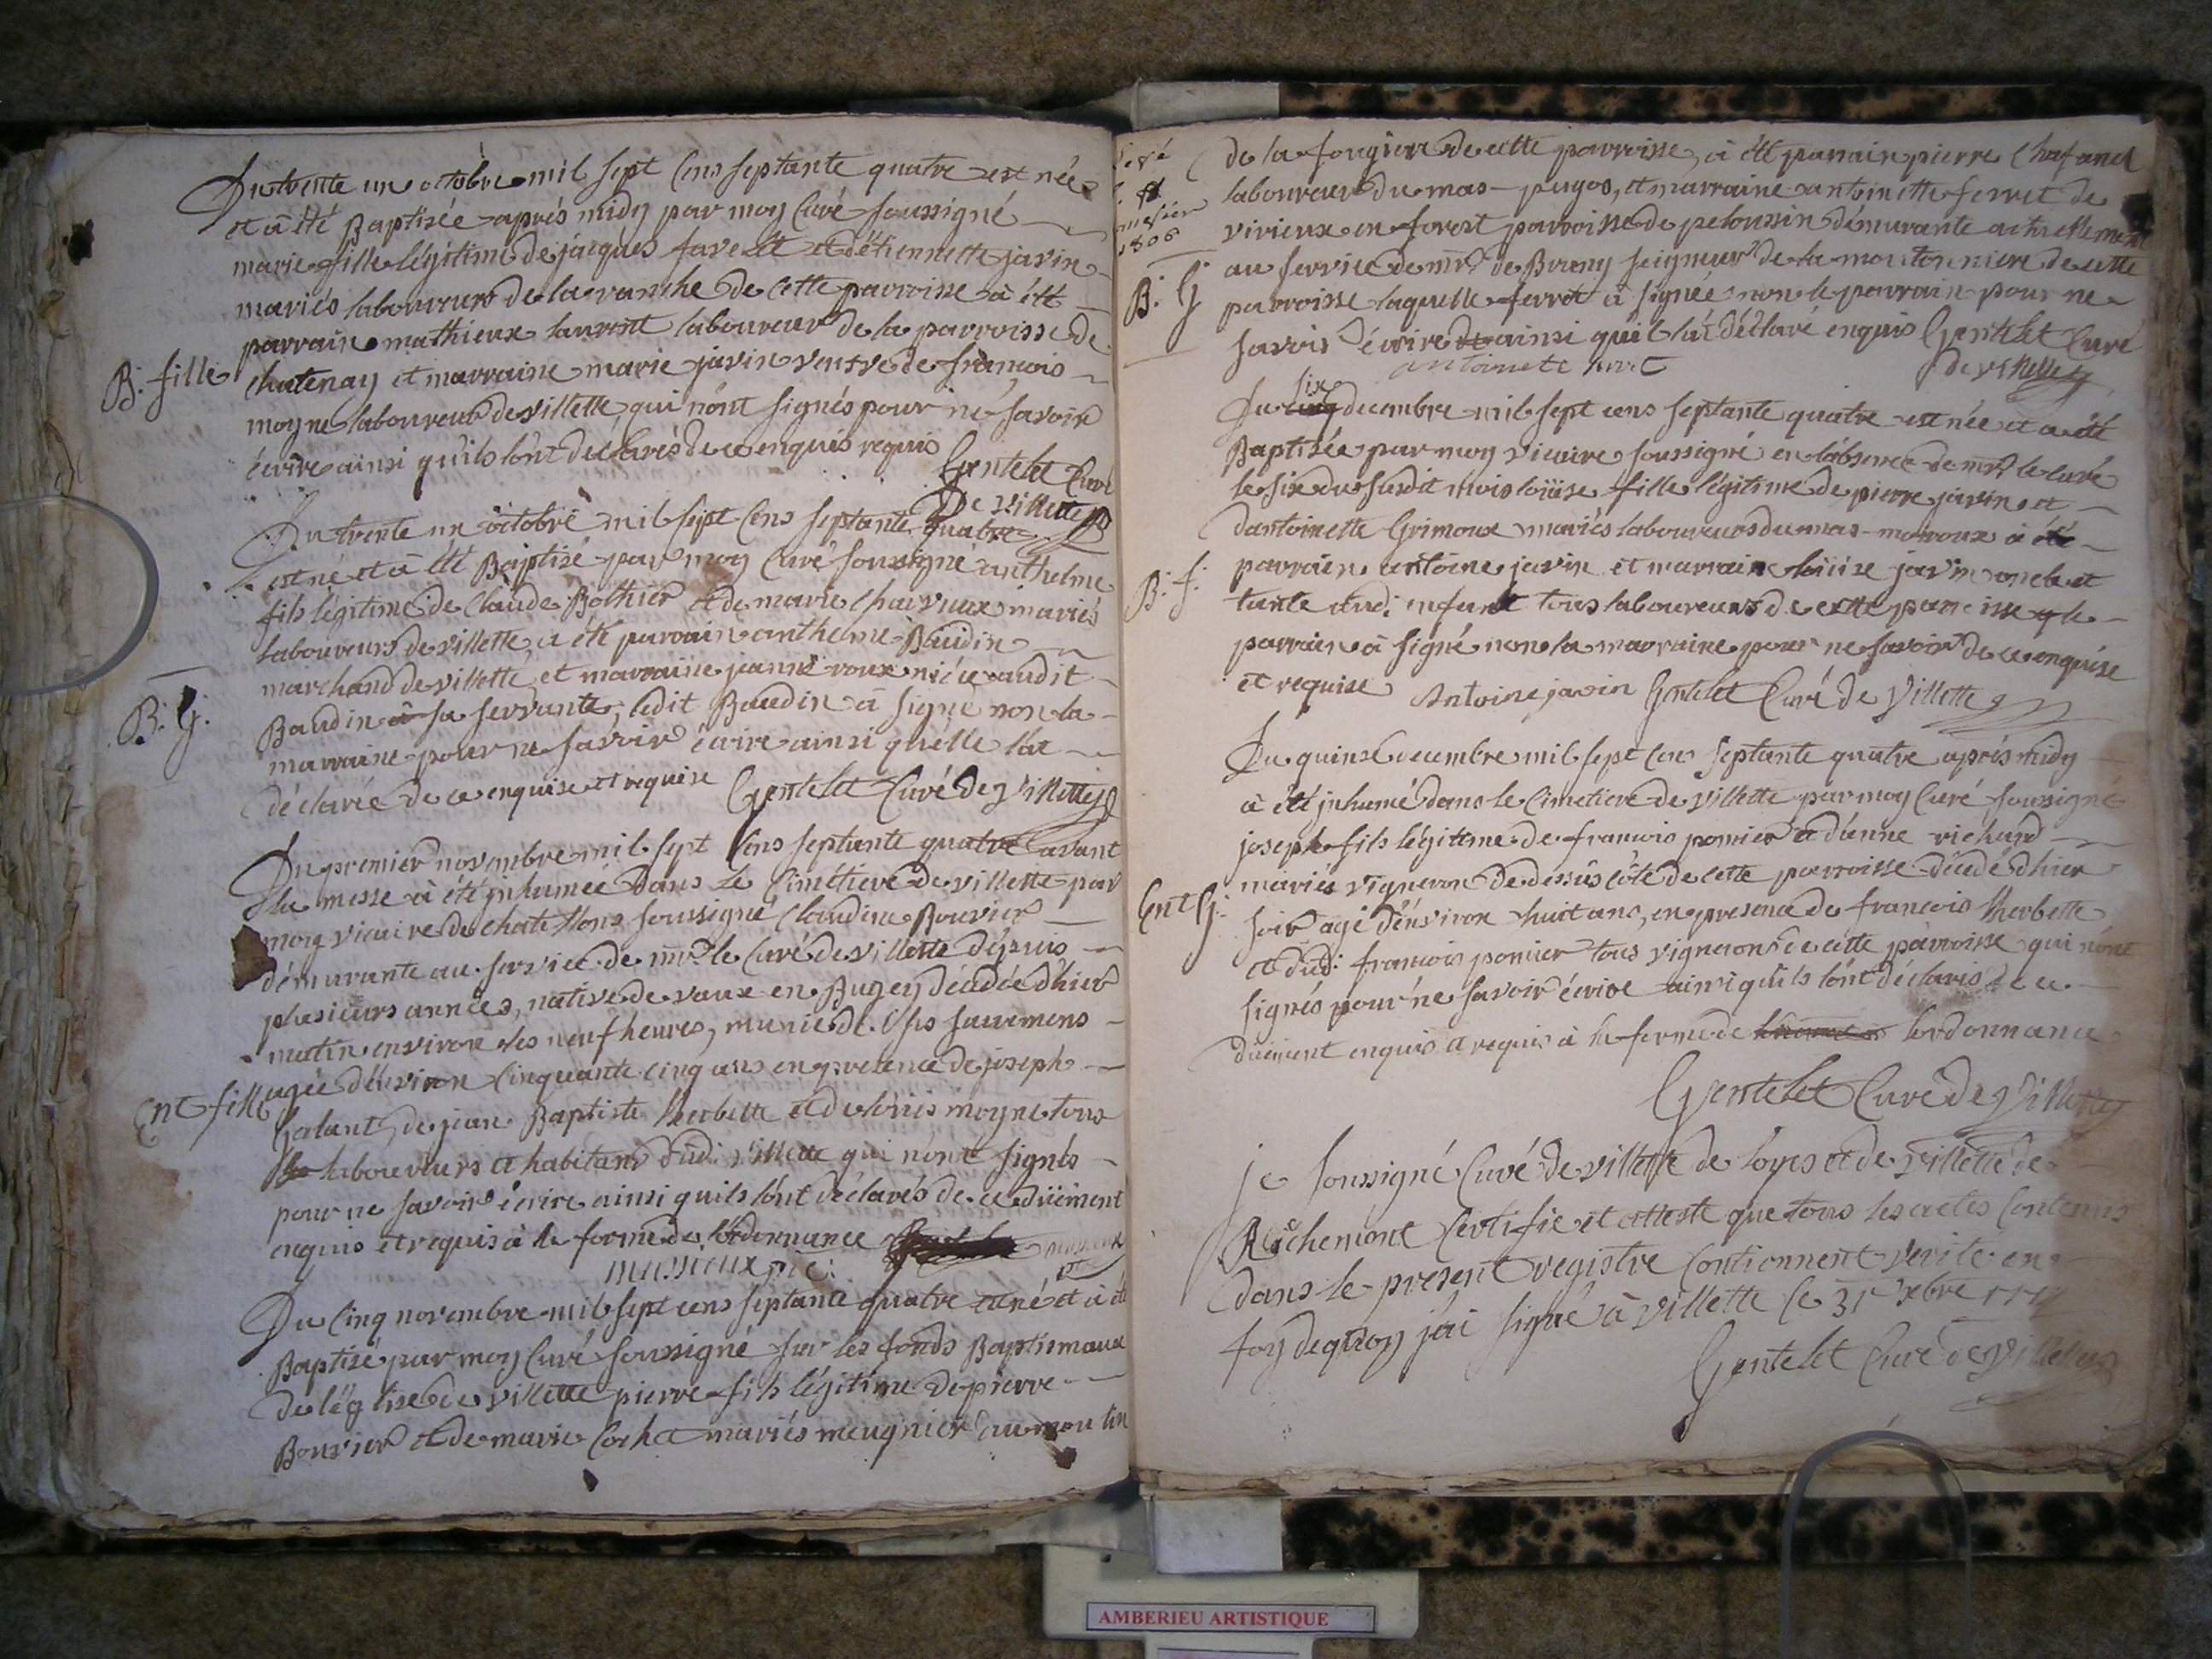 Du trente un octobre mil sept cens septante quatre est née
et à été Baptisée aprés midy par moy Curé soussigné
marie fille légitime de jacques favelet et détiennette javin
mariés laboureurs de la ranche de cette parroisse à été
parrain mathieux laurent laboureur de la parroisse de
B. fille
chatenay et marraine marie javin veufve de francois
moyne laboureur de villette qui n'ont signés pour ne savoir
écrire ainsi quils lont déclarés de ce enquis requis
Gentelet Curé
De villette
Du trente un octobre mil sept cens septante quatre
est né et à été Baptisé par moy Curé soussigné anthelme
fils légitime de Claude Bothier et de marie mariés
laboureurs de villette a été parrain anthelme Baudin
marchand de villette, et marraine jeanne roux niéce audit
B. G.
Baudin sa servante, ledit Baudin à signé non la
marraine pour ne savoir écrire ainsi quelle lat
déclarée de ce enquise et requise Gentelet Curé de Villette
Du premier novembre mil sept cens septante quatre avant
la messe à été jnhumée dans le Cimetiere de villette par
moy vicaire de chatillons soussigné Claudine Bouvier
démurante au service de mr. le Curé de villette dépuis
plusieurs années, native de vaux en Bugey décédée dhier
matin environ les neuf heures, munie de ses sacremens
Ent fille
agée dénviron Cinquante cinq ans en presence de joseph
Galant, de jean Baptiste herbette et de loüis moyne tous
laboureurs et habitans dudi. villette qui nónt signés
pour ne savoir écrire ainsi quils lónt déclarés de ce düement
enquis et requis à la forme de lórdonnance
mussieux
Du Cinq novembre mil sept cens septante quatre est né et à été
Baptisé par moy Curé soussigné sur les fonds Baptismaux
de léglise de villette pierre fils légitime de pierre
Bouvier et de marie Cochet mariés meugnier au moulin
de la fougiere de cette parroisse, à été parrain pierre Chafanel
laboureur du mas pugos, et marraine antoinette ferret de
virieux en forest parroisse de peloussin démurante actuellement
1806
au service de mr. de Bruny seigneur de la moutonniere de cette
B. G
parroisse laquelle ferret à signée non le parrain pour ne
savoir écrire ainsi quil lat déclaré enquis Gentelet Curé
de villette
antoinete
six
Du cinq decembre mil sept cens septante quatre est née et a été
Baptisée par moy vicaire soussigné en lábsence de mr. le curé
le six du susdit mois loüise fille légitime de pierre javin et
dantoinette Grimoux mariés laboureurs du mas maroux à été
B. f.
parrain antoine javin et marraine loüise javin oncle et
tante dudi. enfant tous laboureurs de cette parroisse le
parrain à signé non la marraine pour ne savoir de ce enquise
et requise Antoine javin Gentelet Curé de Villette
Du quinze decembre mil sept cens septante quatre aprés midy
à été jnhumé dans le Cimetiere de villette par moy Curé soussigné
joseph fils légitime de francois pomier et dánne richard
mariés vigneron de dessus côte de cette parroisse décédé dhier
Ent G.
soir agé dénviron huit ans, en presence de francois herbette
et dudi. francois pomier tous vignerons de cette parroisse qui nónt
signés pour ne savoir écrire ainsi quils lónt déclarés de ce
düement enquis et requis à la forme de lordonnance
Gentelet Curé de Villette
je soussigné Curé de villette de loyes et de villette de
Richemont Certifie et atteste que tous les actes Contenus
dans le present registre Contiennent verité en
foy de quoy jái signé à villette ce 31e xbre 1774
Gentelet Curé de Villette
AMBERIEU ARTISTIQUE